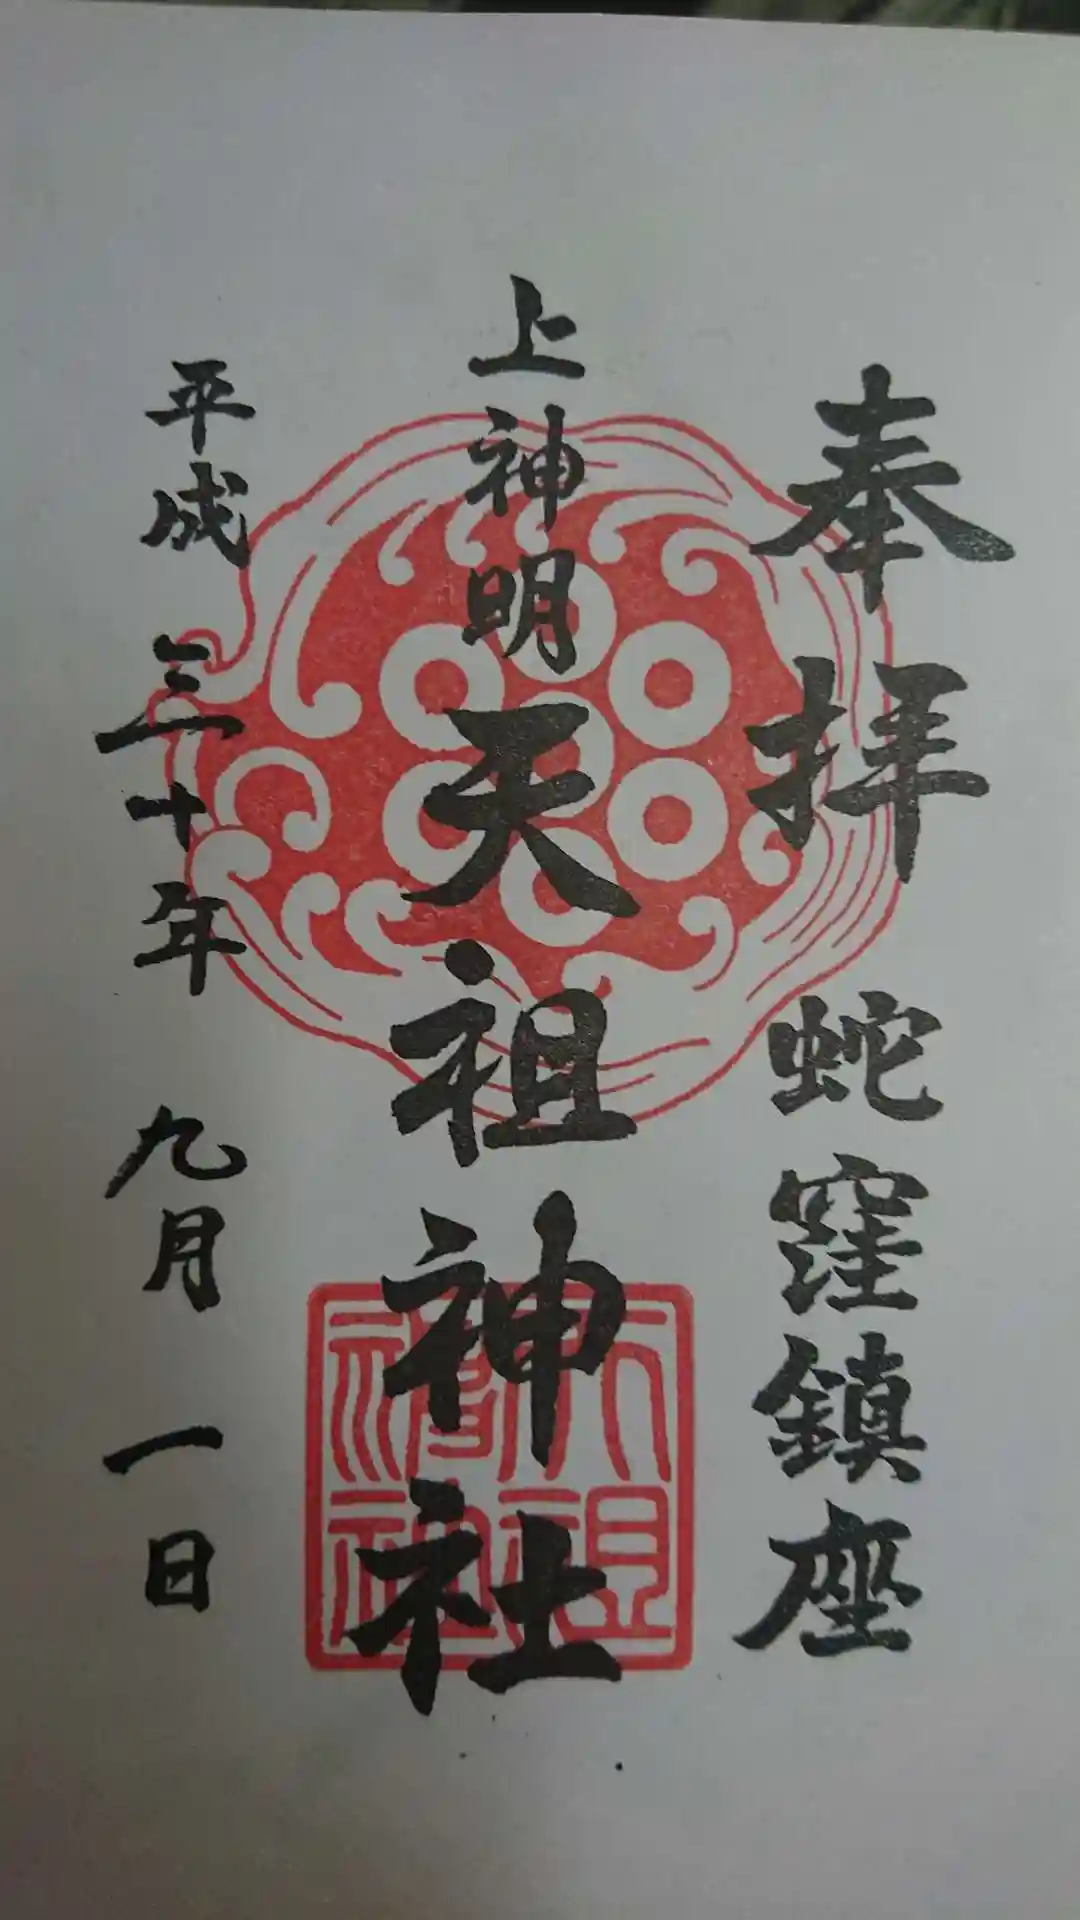 奉拝 蛇窪鎮座
上神明天祖神社
平成三十年九月一日